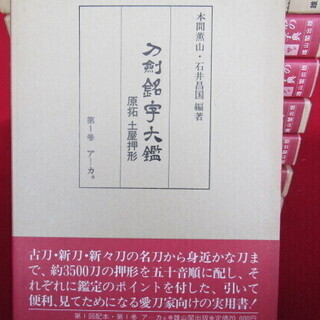 本間薫山・石井昌国 編著
刀剣銘字大鑑
原拓 土屋押形
第1巻 ア―カ。
古刀・新刀・新々刀の名刀から身近な刀ま
で、約3500刀の押形を五十音順に配し、そ
れぞれに鑑定のポイントを付した、引いて
便利、見てためになる愛刀家向けの実用書!
第1回配本・第1巻 ア―カ。雄山閣出版